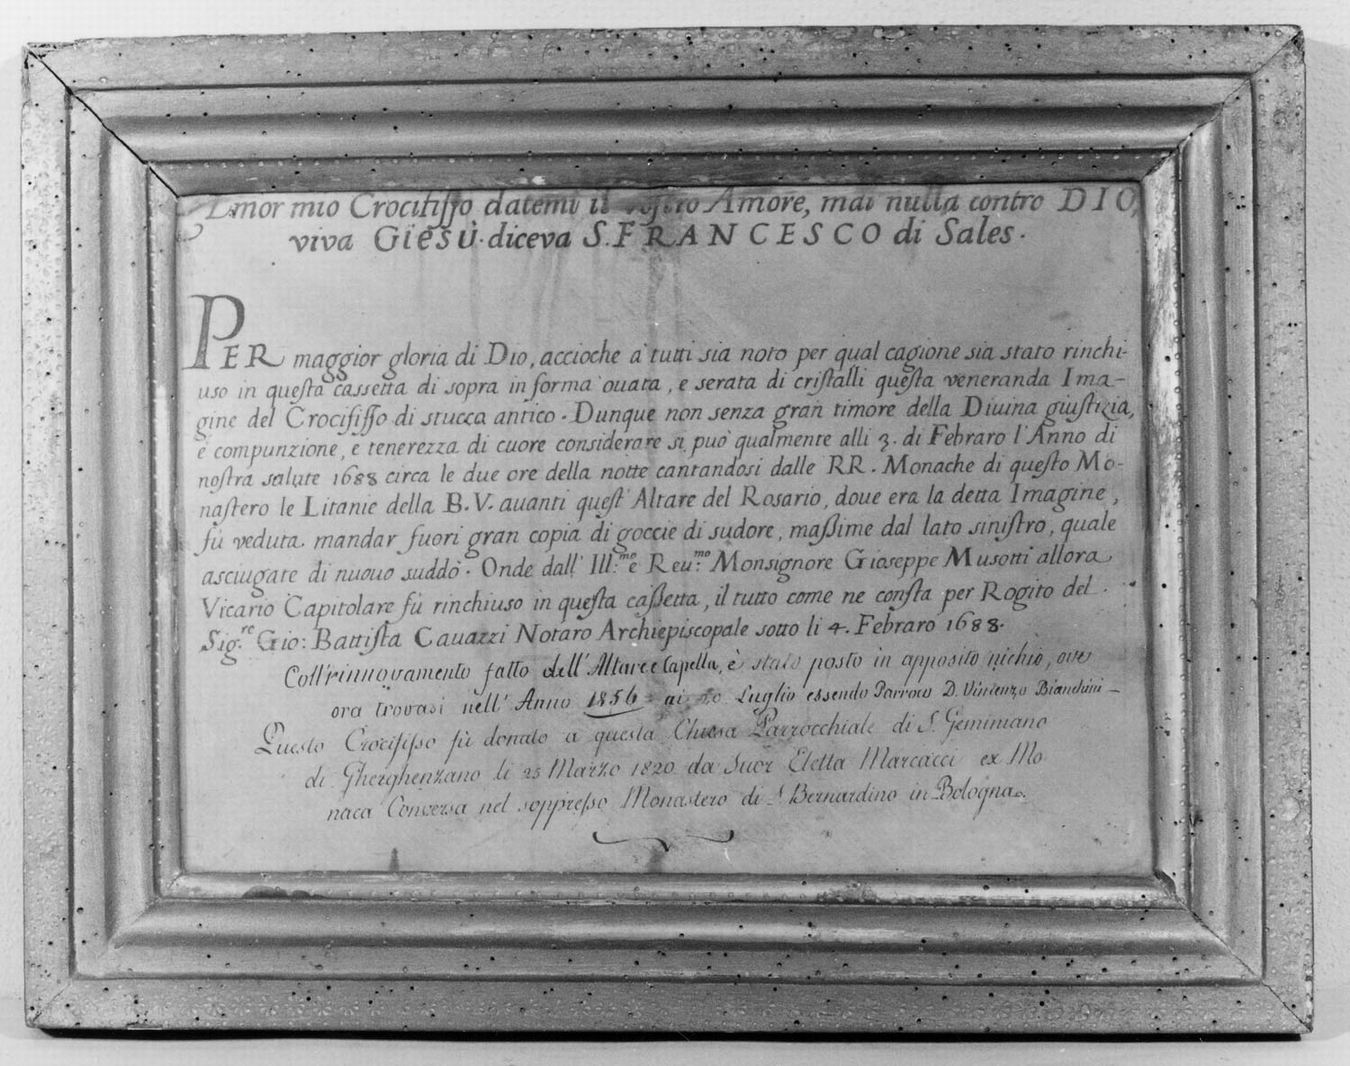 Amor mio Crocifisso datemi il vostro Amore, mai nulla contro DIO,
viva GIESÙ. diceva S. FRANCESCO di Sales.
PER maggior gloria di Dio, accioche a tutti sia noto per qual cagione sia stato rinchi-
uso in questa cassetta di sopra in forma ouata, e serata di cristalli questa veneranda Ima-
gine del Crocifisso di stucca antico. Dunque non senza gran timore della Diuina giustizia,
e compunzione, e tenerezza di cuore considerare si può qualmente alli 3. di Febraro l'Anno di
nostra salute 1688 circa le due ore della notte cantandosi dalle RR. Monache di questo Mo-
nastero le Litanie della B.V. auanti quest'Altare del Rosario, doue era la detta Imagine,
fù veduta mandar fuori gran copia di goccie di sudore, massime dal lato sinistro, quale
asciugate di nuouo suddò. Onde dall' Ill.mo e Reu.mo Monsignore Gioseppe Musotti allora
Vicario Capitolare fù rinchiuso in questa cassetta, il tutto come ne consta per Rogito del
Sig.re Gio: Battista Cauazzi Notaro Archiepiscopale sotto li 4. Febraro 1688.
Coll'rinnovamento fatto dell'Altare e Capella, è stato posto in apposito nichio, ove
ora trovasi nell'Anno 1856 ai 20 Luglio essendo Parroco D. Vincenzo Bianchini
Questo Crocifisso fù donato a questa Chiesa Parrocchiale di S. Geminiano
di Gherghenzano li 25 Marzo 1820 da Suor Eletta Marcacci ex Mo
naca Conversa nel soppresso Monastero di S. Bernardino in Bologna.